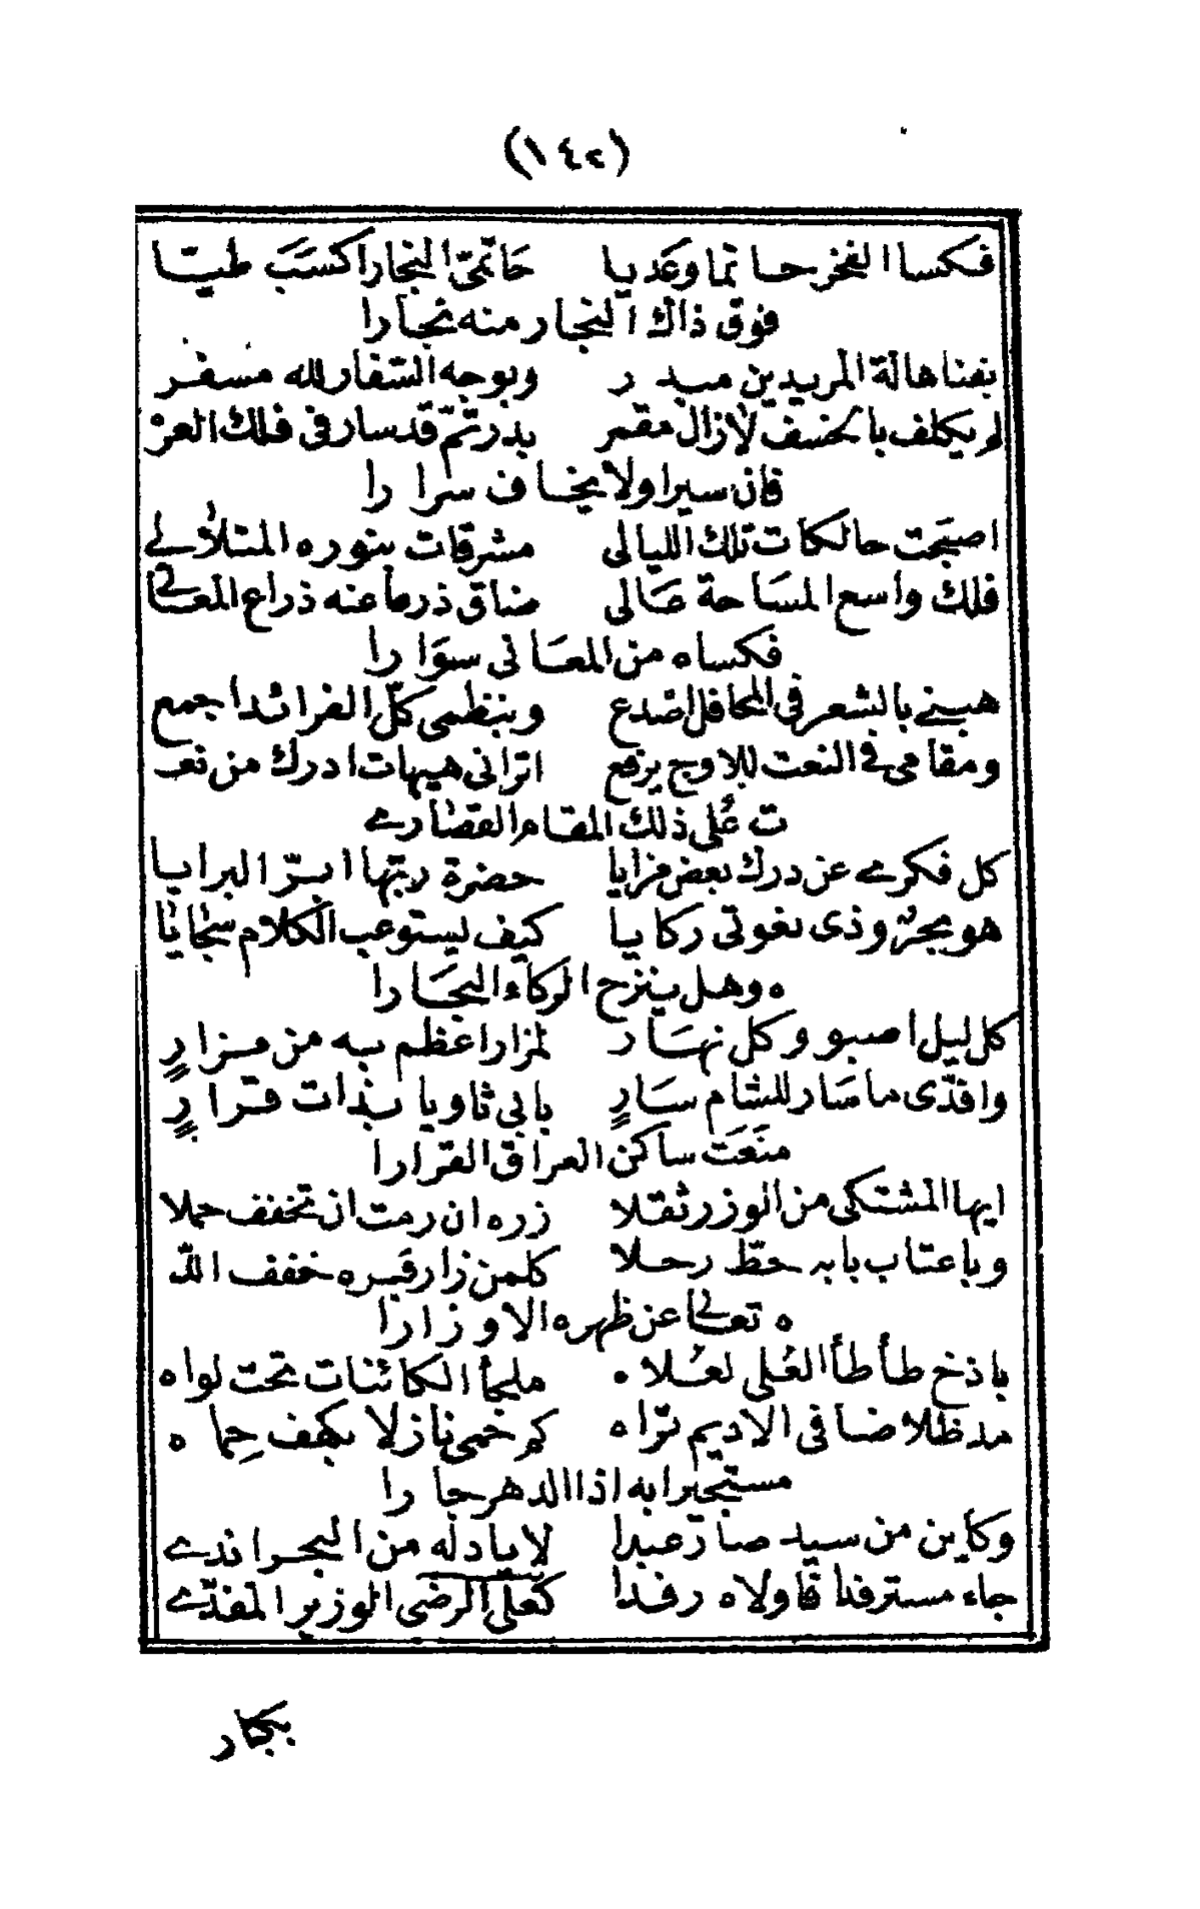 (١٤٢)
فكسا الفخر حاتما وعديا حاتمىّ النجار اكسب طيّا
فوق ذاك النجار منه نجارا
بفنا هالة المريدين مبدر وبوجه السفار لله مسفر
لم يكلف بالخسف لازال مقمر بدر تمّ قد سار فى فلك العز
فان سيرا ولا يخاف سرارا
اصبحت حالكات تلك الليالى مشرقات بنوره المتلألى
فلك واسع المساحة عالى ضاق ذرعا عنه ذراع المعالى
فكساه من المعانى سوارا
هبنى بالشعر فى المحافل اصدع وبنظمى كلّ الفرائد اجمع
ومقامى فى النعت للاوج يرفع اترانى هيهات ادرك من نعـ
ت على ذلك المقام القصارى
كل فكرى عن درك بعض مزايا حضرة ربّها ابرّ البرايا
هو بحرٌ وذى نعوتى ركايا كيف يستوعب الكلام سجايا
ه وهل ينزح الركاء البحارا
كل ليل اصبو وكل نهار لمزار اعظم به من مزارٍ
وافدّى ما سار للشام سارٍ بابى ثاويا بذات قرارٍ
منعت ساكن العراق القرارا
ايها المشتكى من الوزر ثقلا زره ان رمت ان تخفف حملا
وباعتاب بابه حطّ رحلا كلمن زار قبره خفف اللّـ
ه تعالى عن ظهره الاوزارا
باذخ طأطأ العُلى لعُلاه ملجأ الكائنات تحت لواه
مد ظلا ضافى الاديم تراه كم حمى نازلا بكهف حماه
مستجيرا به اذا الدهر جارا
وكاين من سيد صار عبدا لاياد له من البحر اندى
جاء مسترفدا فاولاه رفدا كعلى الرضى الوزير المفدّى